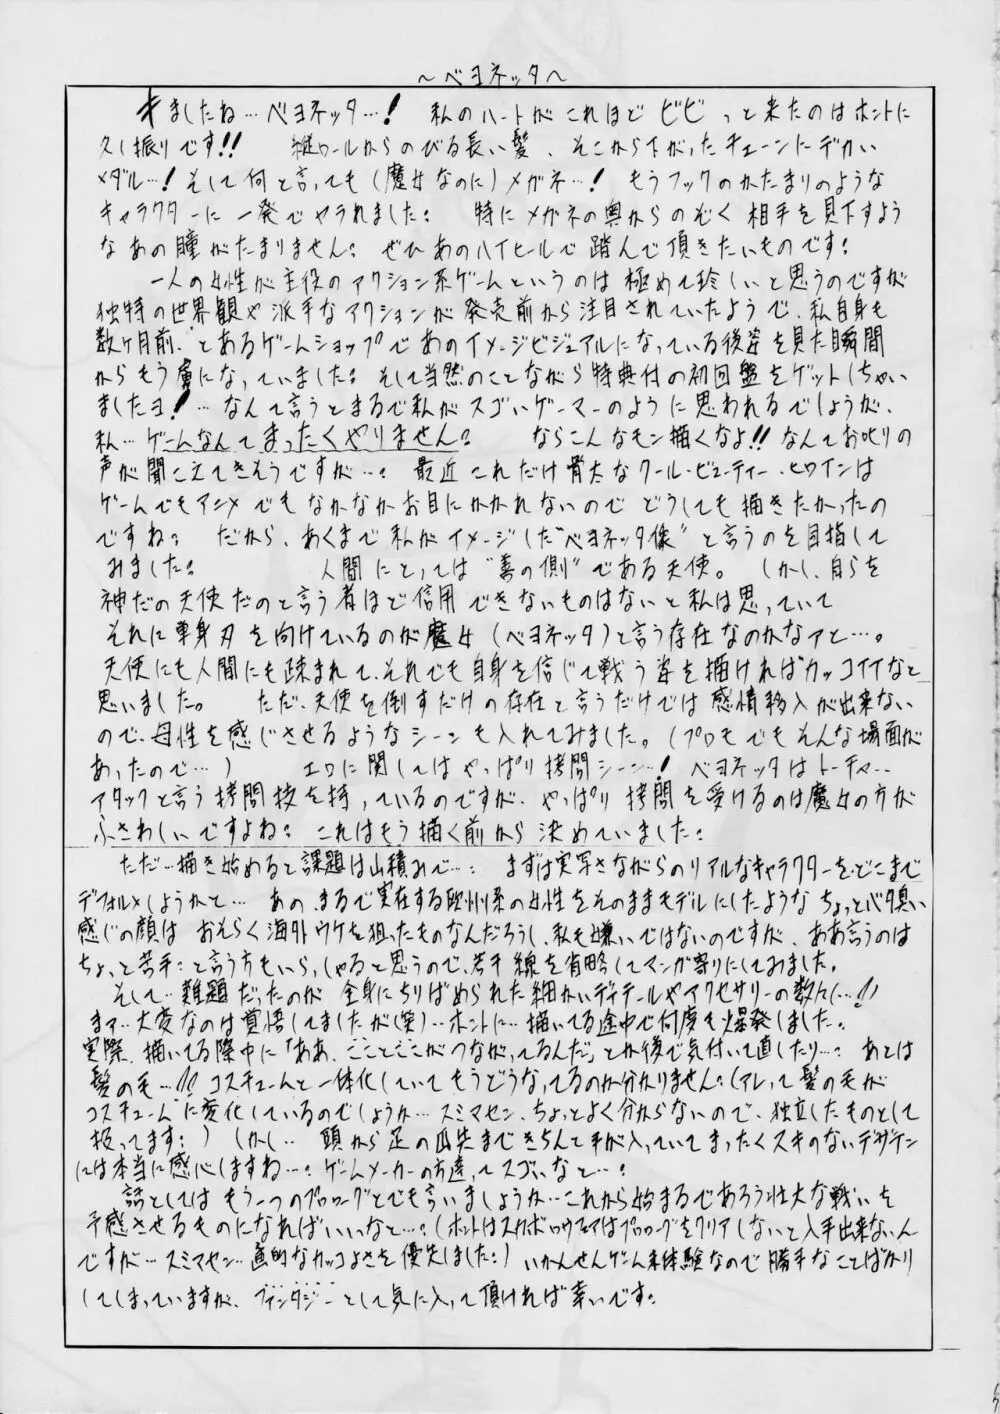 ～ベヨネッタ～
キましたね…ベヨネッタ…! 私のハートがこれほど ビビ っと来たのは ホントに
久し振りです!! 縦ロールからのびる長い髪、そこから下がったチェーンにデカい
メダル…! そして何と言っても(魔女なのに)メガネ…! もうフックのかたまりのような
キャラクターに一発でヤラれました: 特にメガネの奥からのぞく 相手を見下すよう
なあの瞳がたまりません: ぜひあのハイヒールで踏んで頂きたいものです:
一人の女性が主役のアクション系ゲームというのは極めて珍しいと思うのですが
独特の世界観や派手なアクションが発売前から注目されていたようで、私自身も
数ヶ月前、とあるゲームショップであのイメージビジュアルになっている後姿を見た瞬間
からもう虜になっていました: そして当然のことながら特典付の初回盤をゲットしちゃい
ましたヨ!…なんて言うとまるで私がスゴいゲーマーのように思われるでしょうが、
私…ゲームなんてまったくやりません: ならこんなモン描くなよ!! なんてお叱りの
声が聞こえてきそうですが…: 最近これだけ骨太なクール・ビューティー・ヒロインは
ゲームでもアニメでもなかなかお目にかかれないのでどうしても描きたかったの
ですね: だから、あくまで私がイメージした"ベヨネッタ像"と言うのを目指して
みました: 人間にとっては"善の側"である天使。しかし、自らを
神だの天使だのと言う者ほど信用できないものはないと私は思っていて
それに単身刃を向けているのが魔女(ベヨネッタ)と言う存在なのかなァと…。
天使にも人間にも疎まれて、それでも自身を信じて戦う姿を描ければカッコイイなと
思いました。 ただ、天使を倒すだけの存在と言うだけでは感情移入が出来ない
ので、母性を感じさせるようなシーンも入れてみました。(プロモでもそんな場面が
あったので…) エロに関してはやっぱり拷問シーン…! ベヨネッタはトーチャー・
アタックと言う拷問技を持っているのですが、やっぱり 拷問を受けるのは魔女の方が
ふさわしいですよね: これはもう描く前から決めていました:
ただ…描き始めると課題は山積みで…: まずは実写さながらのリアルなキャラクターを、どこまで
デフォルメしようかと… あの、まるで実在する欧州系の女性をそのままモデルにしたような ちょっとバタ臭い
感じの顔は おそらく海外ウケを狙ったものなんだろうし、私も嫌いではないのですが、ああ言うのは
ちょっと苦手:と言う方もいらっしゃると思うので、若干線を省略してマンガ寄りにしてみました。
そして…難題だったのが 全身にちりばめられた細かいディテールやアクセサリーの数々…!!
まァ…大変なのは覚悟してましたが(笑)…ホントに…描いてる途中で何度も爆発しました。
実際、描いてる際中に「ああ、こことここがつながってるんだ」とか後で気付いて直したり…: あとは
髪の毛…!! コスチュームと一体化していてもうどうなってるのか分かりません:(アレって髪の毛が
コスチュームに変化しているのでしょうか…スミマセン、ちょっとよく分からないので、独立したものとして
扱ってます:) しかし… 頭から足の爪先まできちんと手が入っていてまったくスキのないデザイン
には本当に感心しますね…: ゲームメーカーの方達ってスゴいなと…:
話としては もう一つのプロローグとでも言いましょうか…これから始まるであろう壮大な戦いを
予感させるものになればいいなと…:(ホントはスカボロウフェアはプロローグをクリアしないと入手出来ないん
ですが…スミマセン…画的なカッコよさを優先しました:) いかんせんゲーム未体験なので勝手なことばかり
してしまっていますが、ファンタジーとして気に入って頂ければ幸いです: